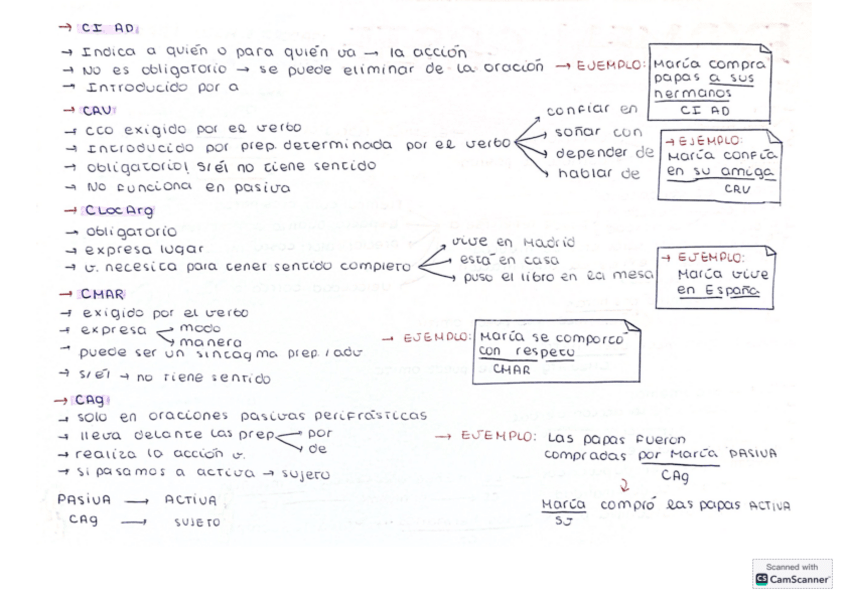 → CI AD
→ Indica a quién o para quién va → la acción
→ No es obligatorio → se puede eliminar de la oración → EJEMPLO: María compra papas a sus hermanos
CI AD
→ Introducido por a
→ CRV
→ CCO exigido por el verbo
→ Introducido por prep. determinada por el verbo
confiar en
soñar con
depender de
hablar de
→ obligatorio! s/él no tiene sentido
→ No funciona en pasiva
→ EJEMPLO:
María confía
en su amiga
CRV
→ CLocArg
→ obligatorio
→ expresa lugar
→ v. necesita para tener sentido completo
vive en Madrid
está en casa
puso el libro en la mesa
→ EJEMPLO:
María vive
en España
→ CMAR
→ exigido por el verbo
→ expresa
modo
manera
→ puede ser un sintagma prep. / adv
→ s/él → no tiene sentido
→ EJEMPLO:
María se comportó
con respeto
CMAR
→ CAg
→ solo en oraciones pasivas perifrásticas
→ lleva delante las prep
por
de
→ realiza la acción v.
→ si pasamos a activa → sujeto
→ EJEMPLO: Las papas fueron
compradas por María PASIVA
CAg
María compró las papas ACTIVA
SJ
PASIVA → ACTIVA
CAg → SUJETO
Scanned with
CS CamScanner